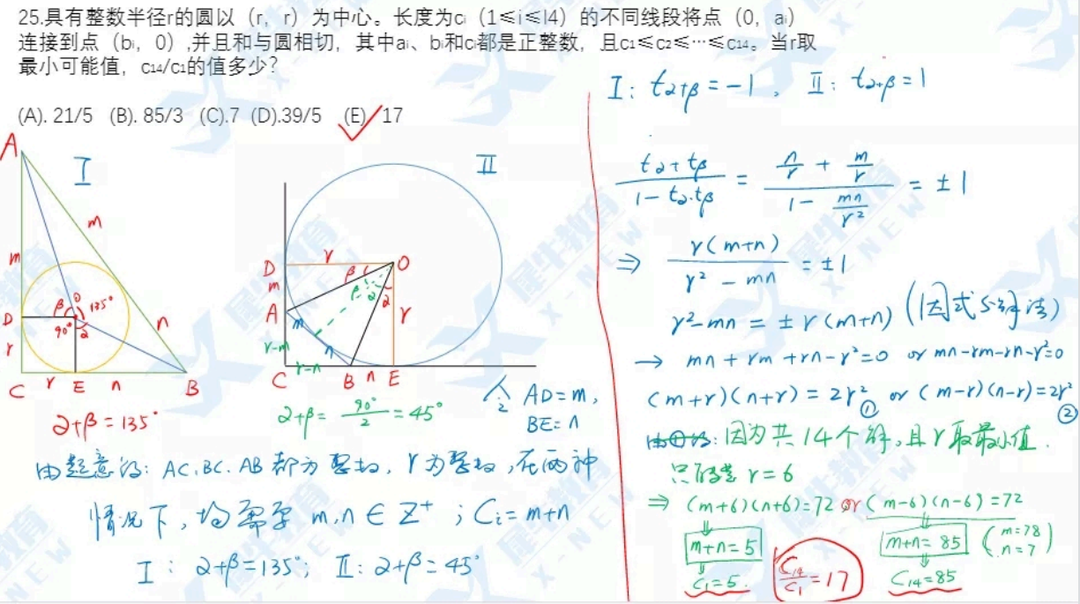 25.具有整数半径r的圆以（r，r）为中心。长度为cᵢ（1≤i≤l4）的不同线段将点（0，aᵢ）
连接到点（bᵢ，0）,并且和与圆相切，其中aᵢ、bᵢ和cᵢ都是正整数，且c₁≤c₂≤⋯≤c₁₄。当r取
最小可能值，c₁₄/c₁的值多少?
(A). 21/5 (B). 85/3 (C).7 (D).39/5 (E) 17
I
A
m
m
D
r
C
r
E
n
B
n
β
O
135°
90°
2
2+β=135°
II
D
r
O
m
β
β
2
2
A
m
r
r-m
n
r-n
C
B
n
E
2+β= 90°/2 =45°
令 AD=m,
BE=n
由题意得: AC.BC.AB都为整数, r为整数,在两种
情况下,均需要 m,n∈Z⁺ ; Cᵢ=m+n
I: 2+β=135°; II: 2+β=45°
I: t2+β=-1, II: t2+β=1
(t2+tβ)/(1-t2·tβ) = (n/r + m/r)/(1- mn/r²) = ±1
⇒ r(m+n)/(r²-mn) = ±1
r²-mn=±r(m+n) (因式分解法)
→ mn+rm+rn-r²=0 or mn-rm-rn-r²=0
(m+r)(n+r)=2r² ① or (m-r)(n-r)=2r² ②
因为共14个解,且r取最小值.
只能是 r=6
⇒ (m+6)(n+6)=72 or (m-6)(n-6)=72
m+n=5
m+n=85 (m=78
n=7)
C₁=5.
C₁₄/C₁=17
C₁₄=85
犀牛教育
X-NEW